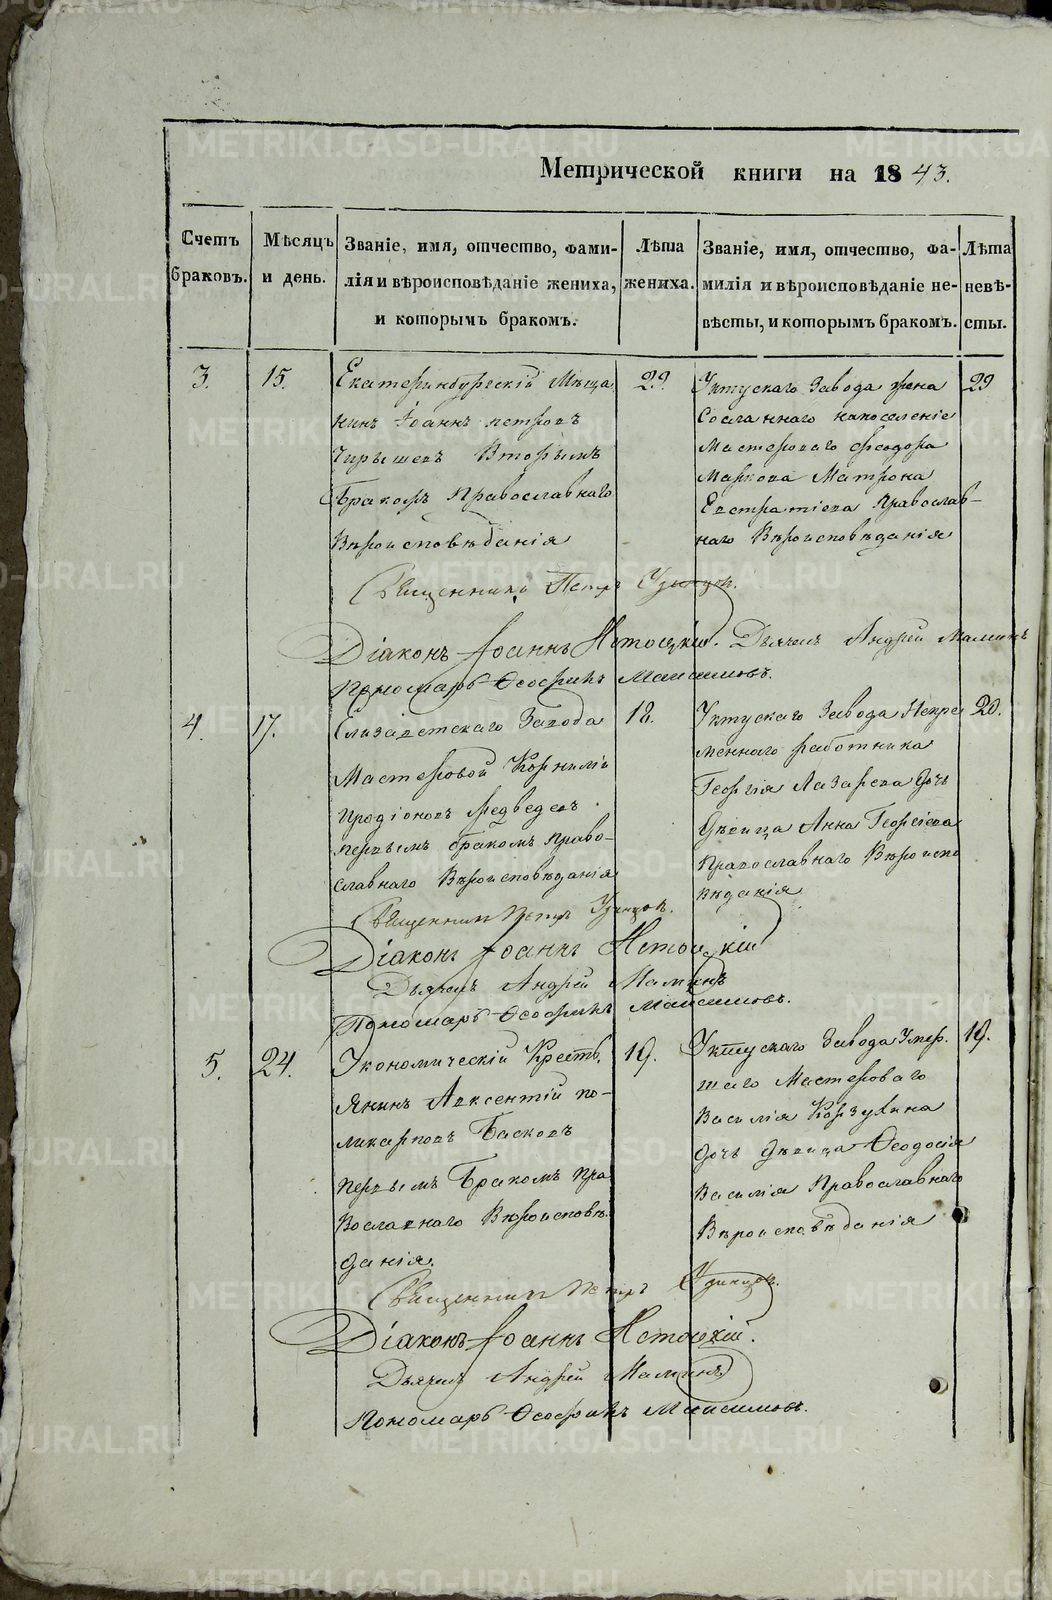 Метрической книги на 1843.
Счетъ браковъ.
Мѣсяцъ и день.
Званіе, имя, отчество, фами-
лія и вѣроисповѣданіе жениха,
и которымъ бракомъ.
Лѣта жениха.
Званіе, имя, отчество, фа-
милія и вѣроисповѣданіе не-
вѣсты, и которымъ бракомъ.
Лѣта невѣ-
сты.
3.
15.
Екатеринбургскій Мѣща
нинъ Іоаннъ петровъ
Вторымъ
Бракомъ Православнаго
Вѣроисповѣданія
29.
Уктускаго Завода жена
Сосланнаго напоселеніе
Мастероваго феодора
Маркова Матрона
Евстратіева Православ-
наго Вѣроисповѣданія
29
Священникъ Петръ Удинцов.
Діаконъ Іоаннъ Дьячекъ Андрей Маминъ
Пономарь Ѳеофилъ Максимовъ.
4.
17.
Елизаветскаго Завода
Мастеровой Корнилій
Иродіоновъ Медведевъ
первымъ бракомъ Право-
славнаго Вѣроисповѣданія
18.
Уктускаго Завода Непре
меннаго работника
Георгія Лазарева дочь
дѣвица Анна Георгіева
Православнаго Вѣроиспо
вѣданія
20.
Священник Петръ Удинцов.
Діаконъ Іоаннъ
Дьячекъ Андрей Маминъ
Пономарь Ѳеофилъ Максимовъ.
5.
24.
Экономическій Кресть
янинъ Авксентій по-
ликарповъ Басковъ
первымъ Бракомъ Пра
вославнаго Вѣроисповѣ
данія.
19.
Уктускаго Завода Умер.
шаго Мастероваго
Василія Корзухина
дочь дѣвица Ѳеодосія
Василія Православнаго
Вѣроисповѣданія
19.
Священник Петръ Удинцов.
Діаконъ Іоаннъ
Дьячекъ Андрей Маминъ
Пономарь Ѳеофилъ Максимовъ.
METRIKI.GASO-URAL.RU